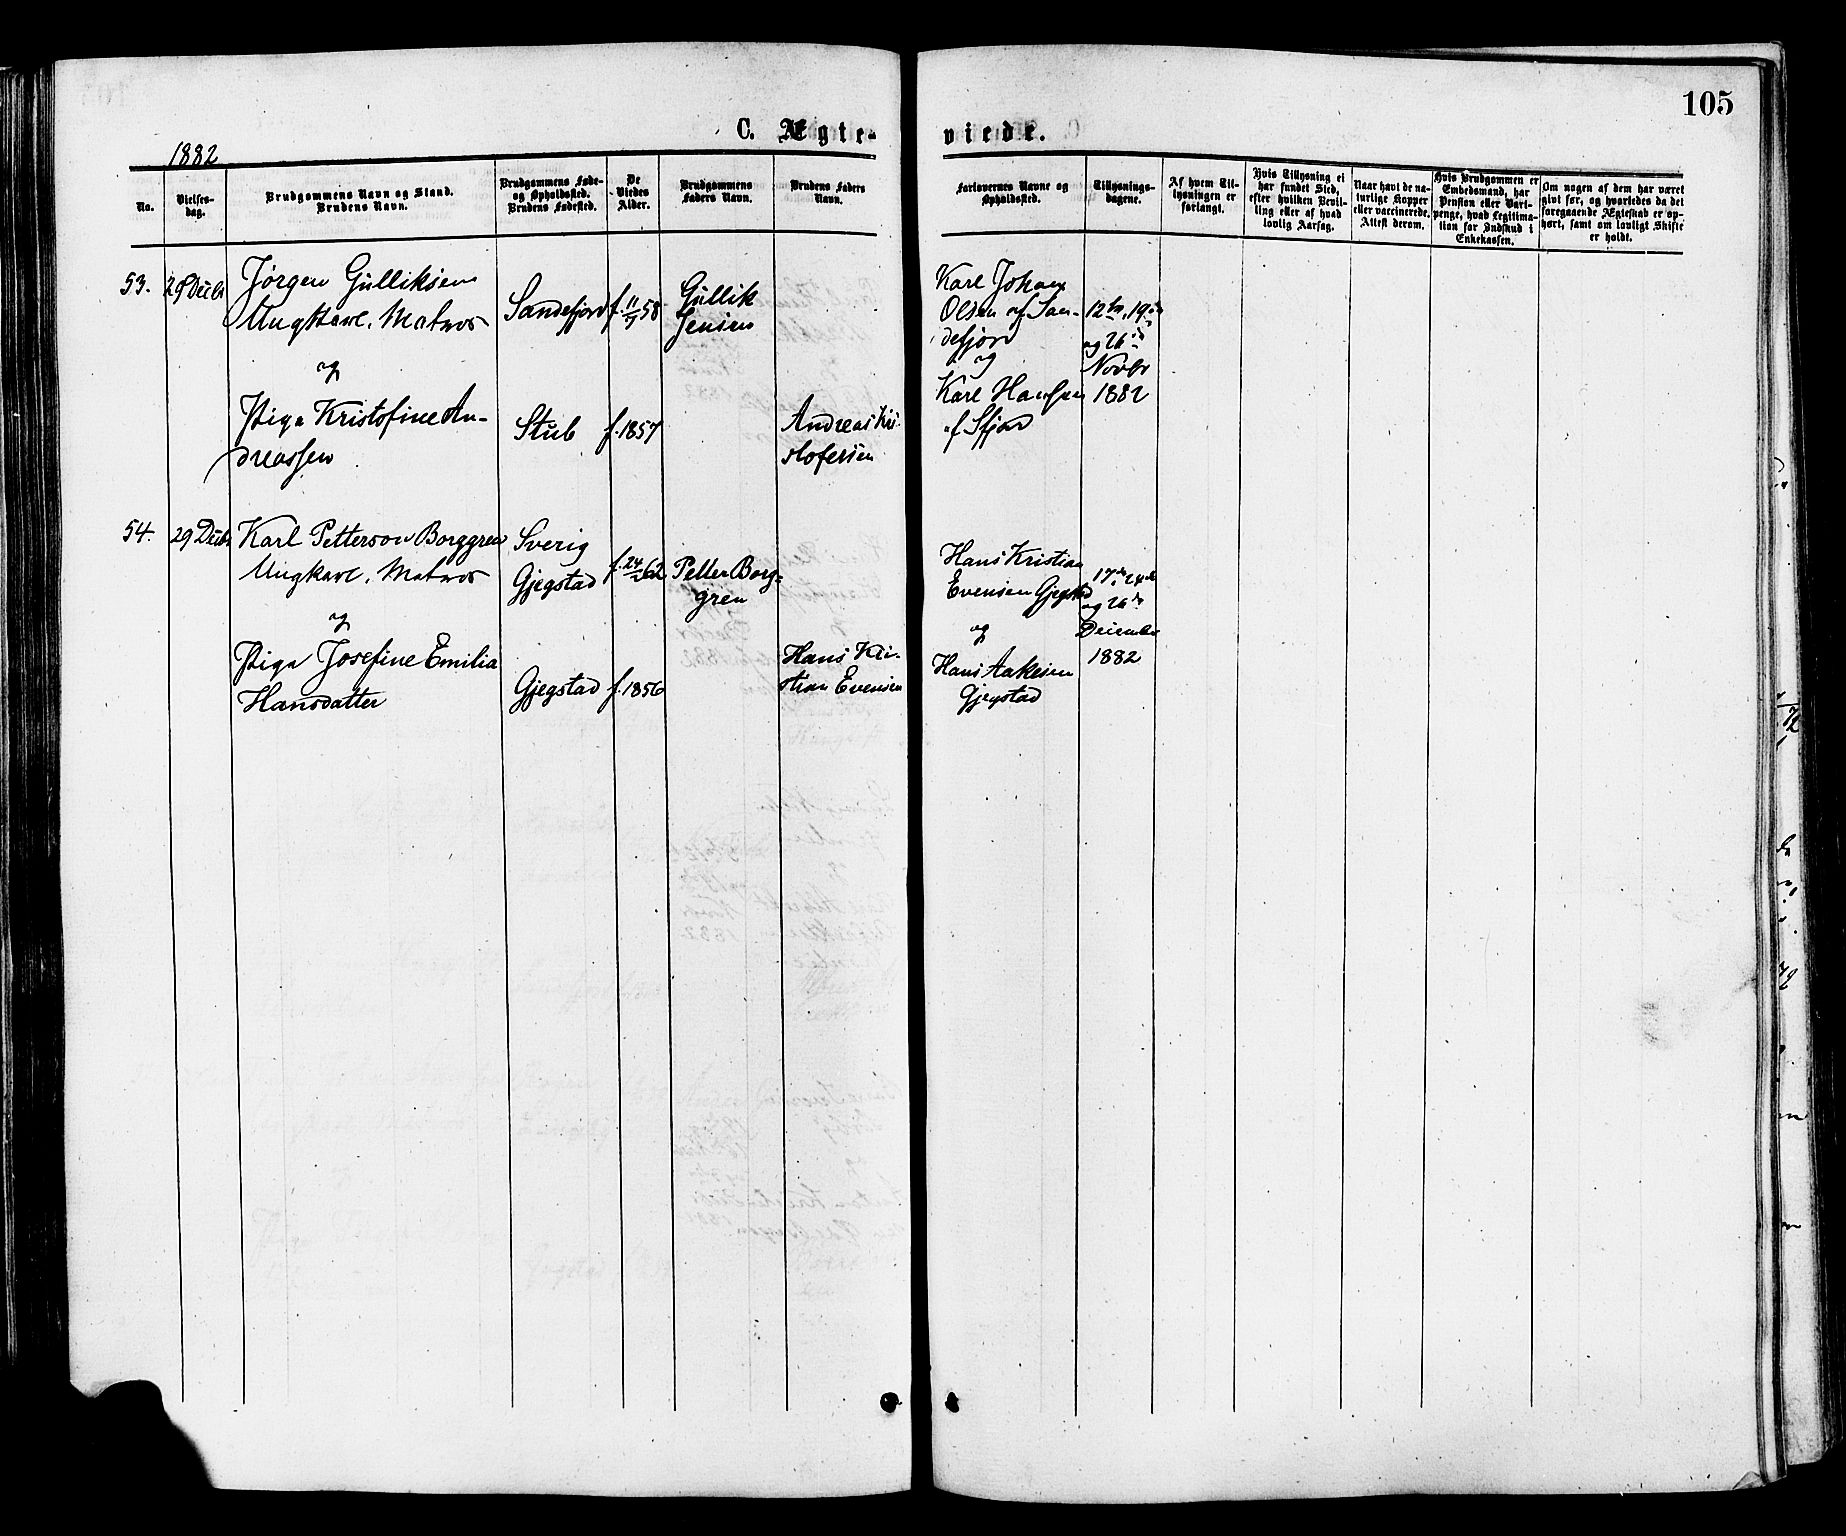 105
C. Ægte-
viede.
1882
No.
Vielses-
dag.
Brudgommens Navn og Stand.
Brudens Navn.
Brudgommens Føde-
og Opholdssted.
Brudens Fødested.
De
Viedes
Alder.
Brudgommens
Faders Navn.
Brudens Faders
Navn.
Forlovernes Navne og
Opholdssted.
Tillysnings-
dagene.
Af hvem Til-
lysningen er
forlangt.
Hvis Tillysning ei
har fundet Sted,
efter hvilken Bevil-
ling eller af hvad
lovlig Aarsag.
Naar havt de na-
turlige Kopper
eller vaccinerede.
Attest derom.
Hvis Brudgommen er
Embedsmand, har
Pension eller Vart-
penge, hvad Legitima-
tion for Indskud i
Enkekassen.
Om nogen af dem har været
givt før, og hvorledes da det
foregaaende Ægteskab er op-
hørt, samt om lovligt Skifte
er holdt.
53.
29 Decbr
Jørgen Gulliksen
Ungkarl. Matros
og
Pige Kristofine An-
dreassen
Sandefjord
Stub
f. 11/9 58
f. 1857
Gullik
Jensen
Andreas Kri-
stofersen
Karl Johan
Olsen af San-
defjord
og
Karl Hansen
af Sfjord
12te, 19de
og 26de
Novbr
1882
54.
29 Decbr
Karl Petterson Borggren
Ungkarl. Matros
og
Pige Josefine Emilia
Hansdatter
Sverig
Gjegstad
Gjegstad
f. 1856
Petter Borg-
gren
Hans Kri-
stian Evensen
Hans Kristian
Evensen Gjegstad
og
Hans Aakesen
Gjegstad
17de 24de
og 26de
December
1882